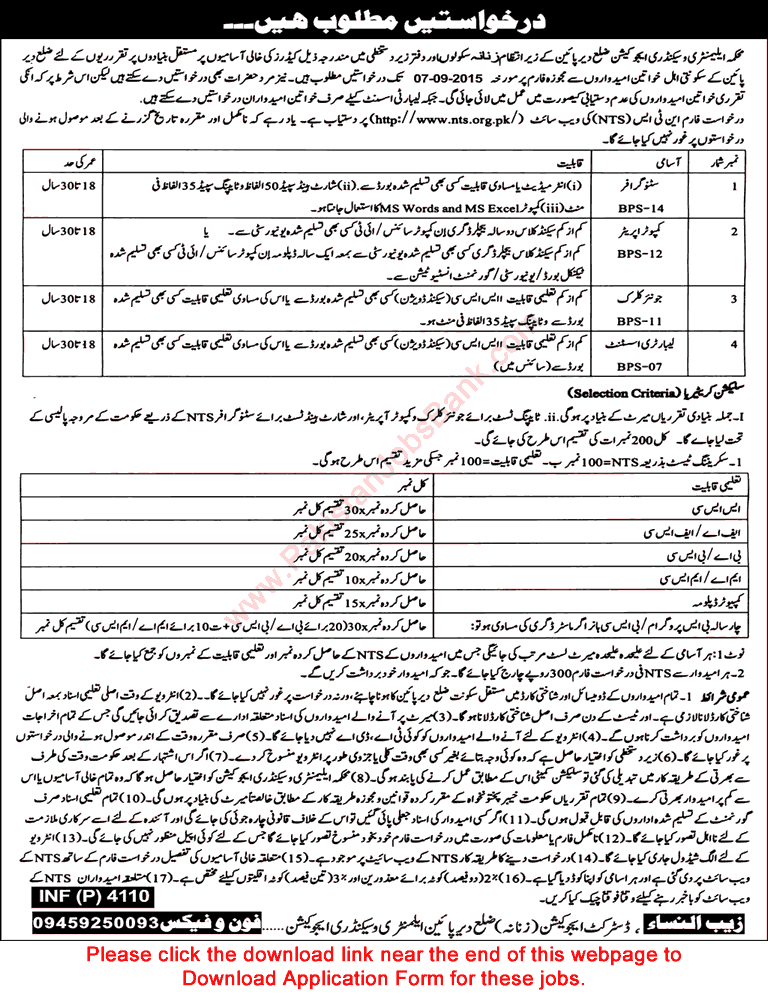 درخواستیں مطلوب ھیں۔۔۔
محکمہ ایلیمنٹری و سیکنڈری ایجوکیشن ضلع دیر پائین کے زیر انتظام زنانہ سکولوں اور دفتر زیر دستخطی میں مندرجہ ذیل کیڈرز کی خالی آسامیوں پر مستقل بنیادوں پر تقرریوں کے لئے ضلع دیر
پائین کے سکونتی اہل خواتین امیدواروں سے مجوزہ فارم پر مورخہ 07-09-2015 تک درخواستیں مطلوب ہیں۔ نیز مرد حضرات بھی درخواستیں دے سکتے ہیں لیکن اس شرط پر کہ انکی
تقرری خواتین امیدواروں کی عدم دستیابی کیصورت میں عمل میں لائی جائی گی۔ جبکہ لیبارٹی اسسٹنٹ کیلئے صرف خواتین امیدواران درخواستیں دے سکتی ہیں۔
درخواست فارم این ٹی ایس (NTS) کی ویب سائٹ (http://www.nts.org.pk/) پر دستیاب ہے۔ یاد رہے کہ نامکمل اور مقررہ تاریخ گزرنے کے بعد موصول ہونے والی
درخواستوں پر غور نہیں کیا جائے گا۔
نمبر شمار آسامی قابلیت عمر کی حد
1 سٹنوگرافر BPS-14 (i) انٹرمیڈیٹ یا مساوی قابلیت کسی بھی تسلیم شدہ بورڈ سے۔ (ii) شارٹ ہینڈ سپیڈ 50 الفاظ و ٹائپنگ سپیڈ 35 الفاظ فی 18 تا 30 سال
منٹ (iii) کمپوٹر MS Words and MS Excel کا استعمال جانتا ہو۔
2 کمپوٹر اپریٹر BPS-12 کم از کم سیکنڈ کلاس دو سالہ بیچلر ڈگری ان کمپوٹر سائنس/آئی ٹی کسی بھی تسلیم شدہ یونیورسٹی سے۔ یا 18 تا 30 سال
کم از کم سیکنڈ کلاس بیچلر ڈگری کسی بھی تسلیم شدہ یونیورسٹی سے بمعہ ایک سالہ ڈپلومہ ان کمپوٹر سائنس/آئی ٹی کسی بھی تسلیم شدہ
ٹیکنکل بورڈ/یونیورسٹی/گورنمنٹ انسٹیوٹیشن سے۔
3 جونئر کلرک BPS-11 کم از کم تعلیمی قابلیت ایس ایس سی (سیکنڈ ڈویژن) کسی بھی تسلیم شدہ بورڈ سے یا اس کی مساوی تعلیمی قابلیت کسی بھی تسلیم شدہ 18 تا 30 سال
بورڈ سے و ٹائپنگ سپیڈ 35 الفاظ فی منٹ ہو۔
4 لیبارٹری اسسٹنٹ BPS-07 کم از کم تعلیمی قابلیت ایس ایس سی (سیکنڈ ڈویژن) کسی بھی تسلیم شدہ بورڈ سے یا اس کی مساوی تعلیمی قابلیت کسی بھی تسلیم شدہ 18 تا 30 سال
بورڈ سے (سائنس میں)
سلیکشن کریٹیریا (Selection Criteria)
I۔ جملہ بنیادی تقرریاں میرٹ کے بنیاد پر ہوگی۔ ii۔ ٹائپنگ ٹسٹ برائے جونئر کلرک و کمپوٹر آپریٹر، اور شارٹ ہینڈ ٹسٹ برائے سٹنوگرافر NTS کے ذریعے حکومت کے مروجہ پالیسی کے
تحت لیا جائے گا۔ کل 200 نمبرات کی تقسیم اس طرح کی جائے گی۔
1۔ سکریننگ ٹیسٹ بذریعہ NTS=100 نمبر ب۔ تعلیمی قابلیت=100 نمبر جسکی مزید تقسیم اس طرح ہوگی۔
تعلیمی قابلیت کل نمبر
ایس ایس سی حاصل کردہ نمبر 30x تقسیم کل نمبر
ایف اے/ایف ایس سی حاصل کردہ نمبر 25x تقسیم کل نمبر
بی اے/بی ایس سی حاصل کردہ نمبر 20x تقسیم کل نمبر
ایم اے/ایم ایس سی حاصل کردہ نمبر 10x تقسیم کل نمبر
کمپیوٹر ڈپلومہ حاصل کردہ نمبر 15x تقسیم کل نمبر
چار سالہ بی ایس پروگرام/بی ایس سی ہانز اگر ماسٹر ڈگری کی مساوی ہو تو: حاصل کردہ نمبر 30x(20 برائے بی اے/بی ایس سی + 10 برائے ایم اے/ایم ایس سی) تقسیم کل نمبر
نوٹ 1: ہر آسامی کے لئے علیحدہ علیحدہ میرٹ لسٹ مرتب کی جائیگی جس میں امیدواروں کے NTS کے حاصل کردہ نمبر اور تعلیمی قابلیت کے نمبروں کو جمع کیا جائے گا۔
2۔ ہر امیدوار سے NTS فی درخواست فارم 300 روپے چارج کیا جائے گا۔ جو کہ امیدوار خود برداشت کریں گے۔
عمومی شرائط 1۔ تمام امیدواروں کے ڈومیسائل اور شناختی کارڈ میں مستقل سکونت ضلع دیر پائین کا ہونا چاہیے، ورنہ درخواست پر غور نہیں کیا جائے گا۔ (2) انٹرویو کے وقت اصلی تعلیمی اسناد بمعہ اصل
شناختی کارڈ لانا لازمی ہے۔ اور ٹیسٹ کے دن صرف اصل شناختی کارڈ لانا ہوگا۔ (3) میرٹ پر آنے والے امیدواروں کی اسناد متعلقہ ادارے سے تصدیق کرائی جائیں گی جس کے تمام اخراجات
امیدواروں کو برداشت کرنا ہوں گے۔ (4) انٹرویو کے لئے آنے والے امیدواروں کو کوئی ٹی اے، ڈی اے نہیں دیا جائے گا۔ (5) صرف مقررہ وقت کے اندر موصول ہونے والی درخواستوں
پر غور کیا جائے گا۔ (6) زیر دستخطی کو اختیار حاصل ہے کہ وہ کوئی وجہ بتائے بغیر کسی بھی وقت کلی یا جزوی طور پر انٹرویو منسوخ کر دے۔ (7) اگر اس اشتہار کے بعد حکومت وقت کی طرف
سے بھرتی کے طریقہ کار میں تبدیلی کی گئی تو سلیکشن کمیٹی اس کے مطابق عمل کرنے کی پابند ہوگی۔ (8) محکمہ ایلیمنٹری و سیکنڈری ایجوکیشن کو اختیار حاصل ہوگا کہ وہ تمام خالی آسامیوں یا اس
سے کم پر امیدوار بھرتی کرے۔ (9) تمام تقرریاں حکومت خیبر پختونخواہ کے مقرر کردہ قوانین و مجوزہ طریقہ کار کے مطابق خالصتاً میرٹ کی بنیاد پر ہوں گی۔ (10) تمام تعلیمی اسناد صرف
گورنمنٹ کے تسلیم شدہ اداروں کی قابل قبول ہوں گی۔ (11) اگر کسی امیدوار کی اسناد جعلی پائی گئیں تو اس کے خلاف قانونی چارہ جوئی کی جائے گی اور آئندہ کے لئے اسے سرکاری ملازمت
کے لئے نااہل تصور کیا جائے گا۔ (12) نامکمل فارم یا معلومات کی صورت میں درخواست فارم خود بخود منسوخ تصور کیا جائے گا جس کے لئے کوئی اپیل منظور نہیں کی جائے گی۔ (13) انٹرویو
کے لئے الگ شیڈول جاری کیا جائے گا۔ (14) درخواست دینے کا طریقہ کار NTS کے ویب سائیٹ پر موجود ہے۔ (15) متعلقہ خالی آسامیوں کی تفصیل درخواست فارم کے ساتھ NTS کے
ویب سائٹ پر دی گئی ہے اور ہر اسامی کو اپنا کوڈ دیا گیا ہے۔ (16) 2% (دو فیصد) کوٹہ برائے معذورین اور 3% (تین فیصد) کوٹہ اقلیتوں کیلئے مختص ہے۔ (17) متعلقہ امیدواران NTS کے
ویب سائٹ کو باخبر رہنے کیلئے وقتاً فوقتاً چیک کیا کریں۔
INF (P) 4110
زیب النساء، ڈسٹرکٹ ایجوکیشن (زنانہ) ضلع دیر پائین ایلمنٹری و سیکنڈری ایجوکیشن...... فون و فیکس 09459250093
www.PakistanJobsBank.com
Please click the download link near the end of this webpage to
Download Application Form for these jobs.